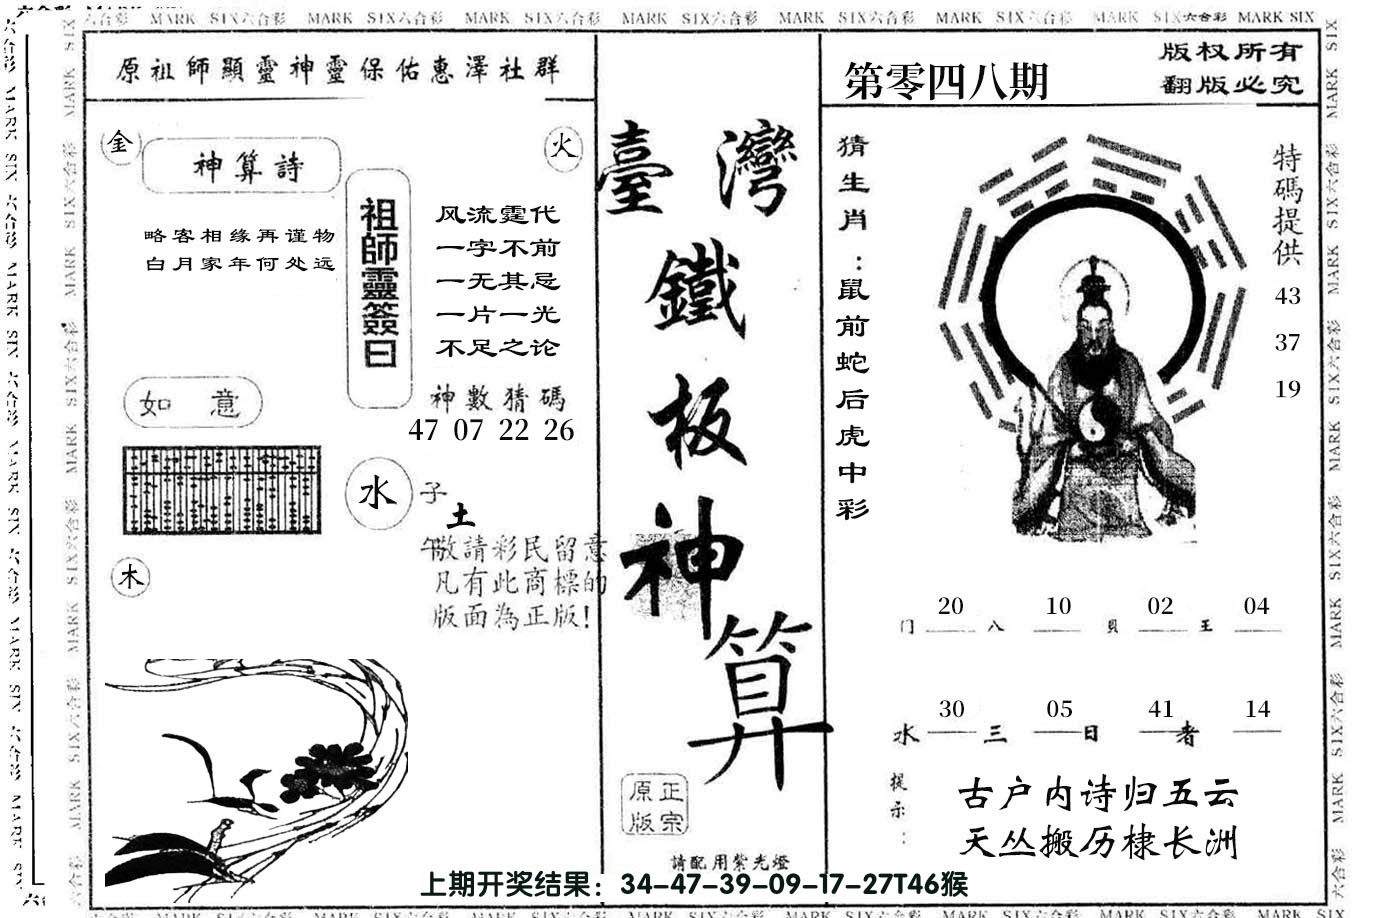 六合彩 MARK SIX六合彩 MARK SIX六合彩 MARK SIX六合彩 MARK SIX六合彩 MARK SIX六合彩 MARK SIX六合彩 MARK SIX六合彩 MARK SIX
原祖師顯靈神靈保佑惠澤社群
金
神算詩
略客相缘再谨物
白月家年何处远
火
祖師靈簽曰
风流霆代
一字不前
一无其忌
一片一光
不足之论
神數猜碼
47 07 22 26
如 意
水
子
土
午
木
敬請彩民留意
凡有此商標的
版面為正版!
臺灣
鐵
板
神
算
正宗
原版
請配用紫光燈
第零四八期
版权所有
翻版必究
猜生肖:鼠前蛇后虎中彩
特碼提供
43
37
19
20 10 02 04
门 八 贝 王
30 05 41 14
水 三 日 者
提示:
古户内诗归五云
天丛搬历棣长洲
上期开奖结果：34-47-39-09-17-27T46猴